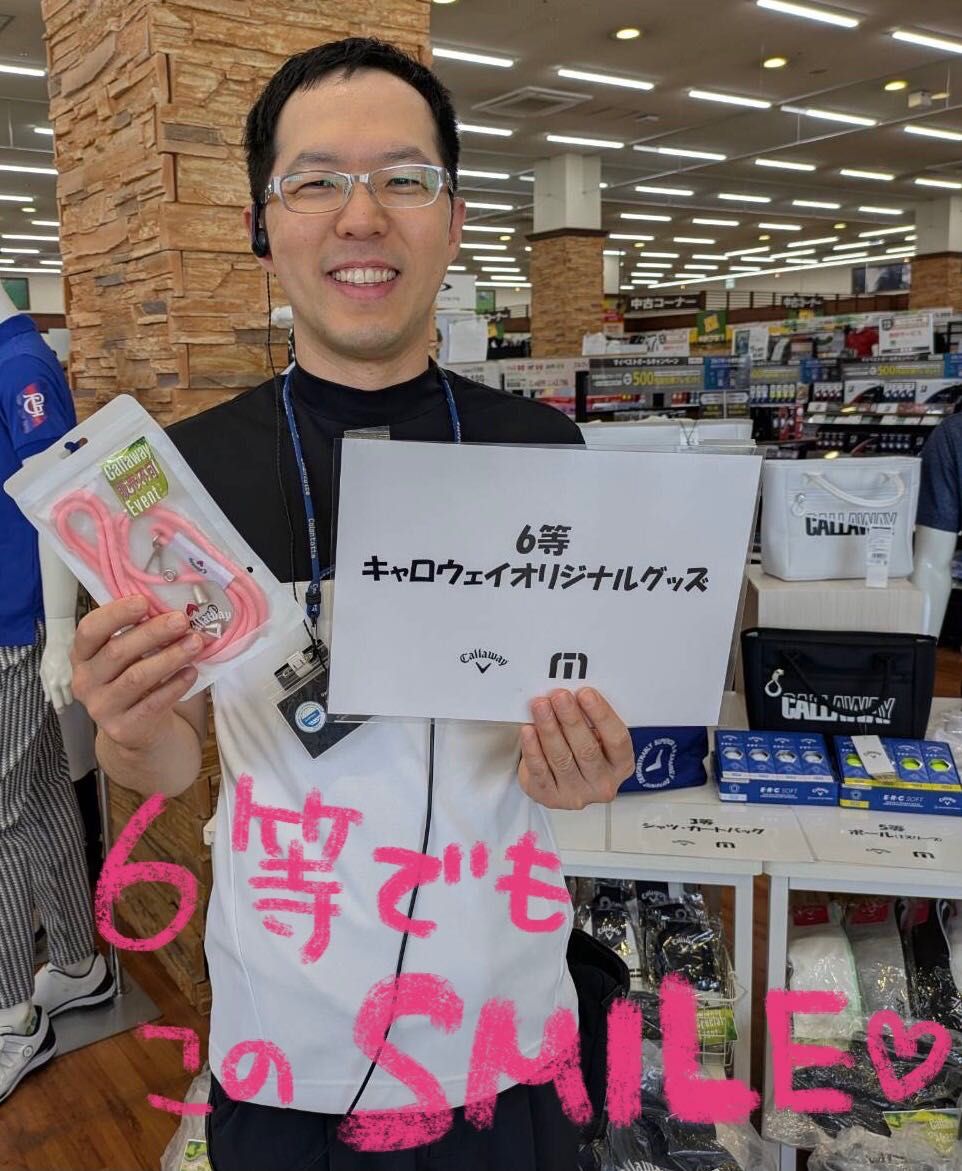 中古コーナー
マイベストボールキャンペーン
500
Callaway
Event
Colantotte
6等
キャロウェイオリジナルグッズ
Callaway
CALLAWAY
CALLAWAY
E・R・C SOFT
3等
シャツ・カートバッグ
5等
6等でも
このSMILE♡